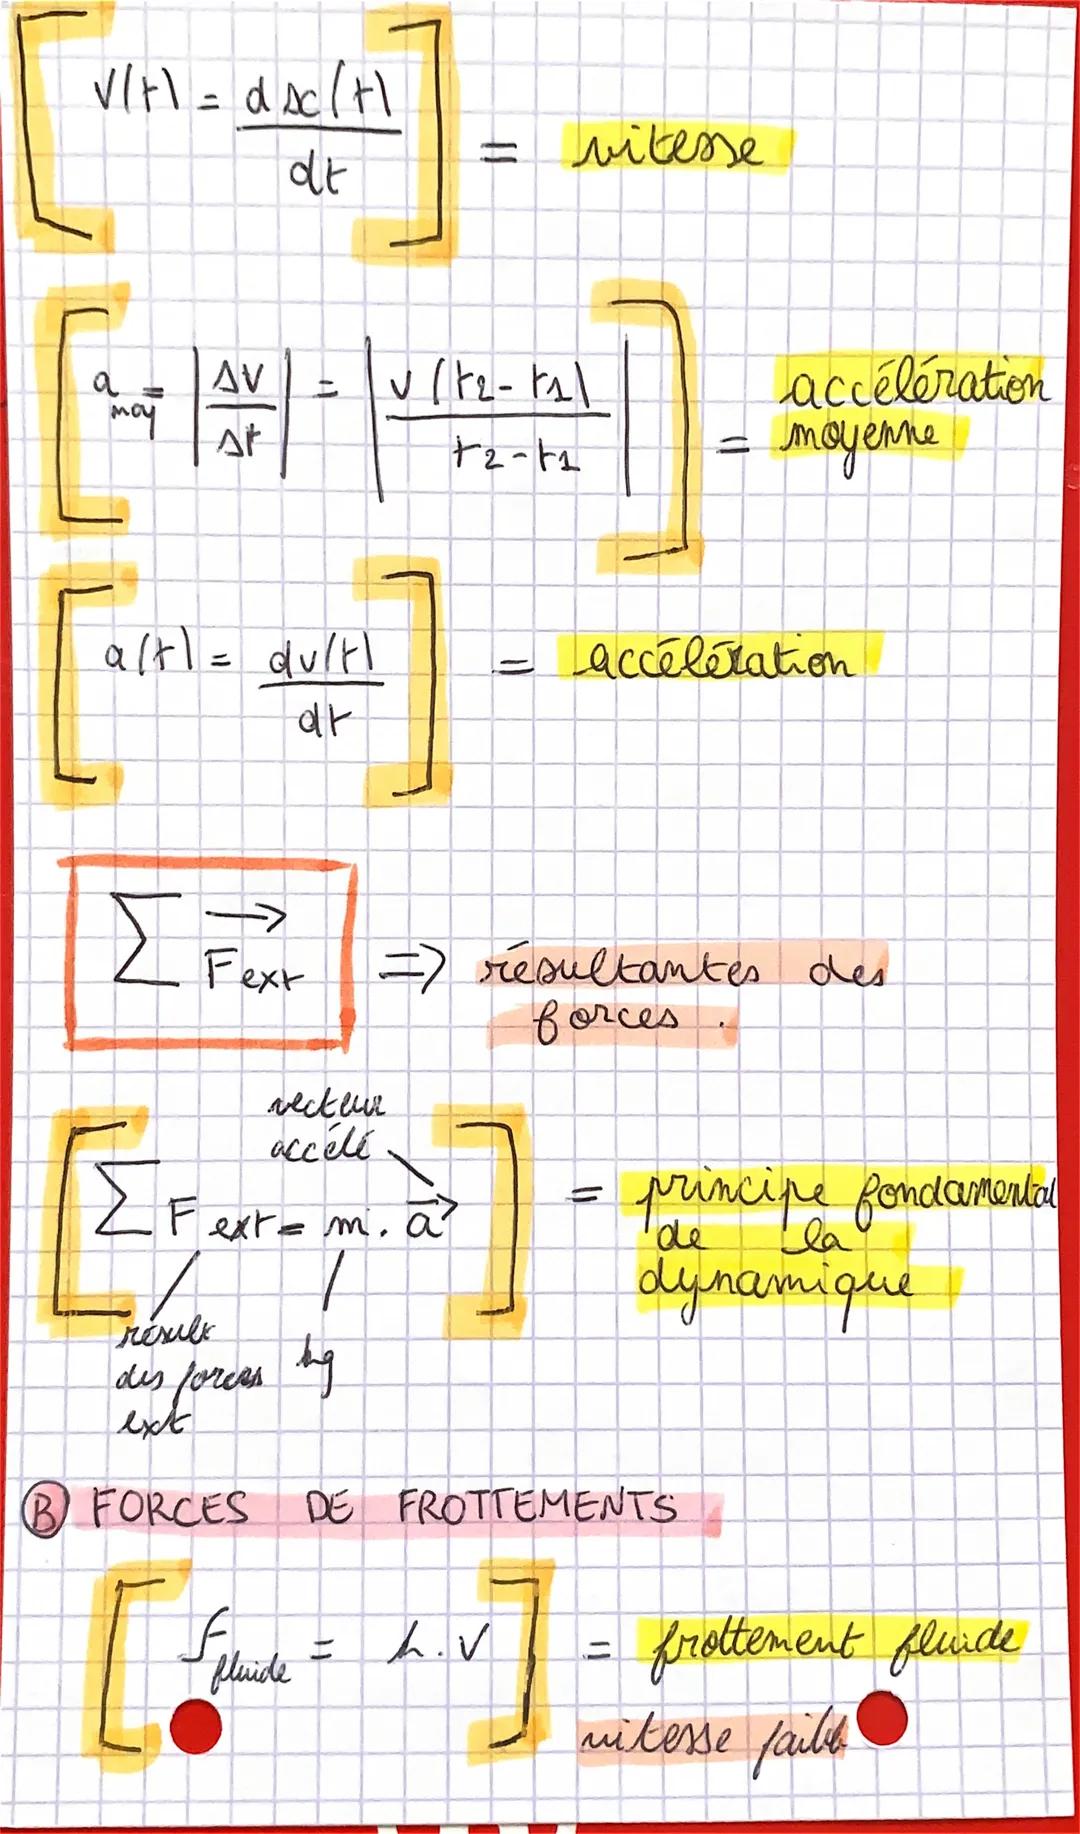 v(t) = dx(t)
dt
= vitesse
a moy = |Δv/Δt| = |v(t2-t1)/t2-t1|
= accélération
moyenne
a(t) = dv(t)
dt
= accélération
∑ F⃗ext ⇒ résultantes des
forces.
vecteur
accélé
∑ F ext = m. a⃗
= principe fondamental
de la
dynamique
résult
des forces
ext
kg
B FORCES DE FROTTEMENTS
f fluide = h.v = frottement fluide
vitesse faible